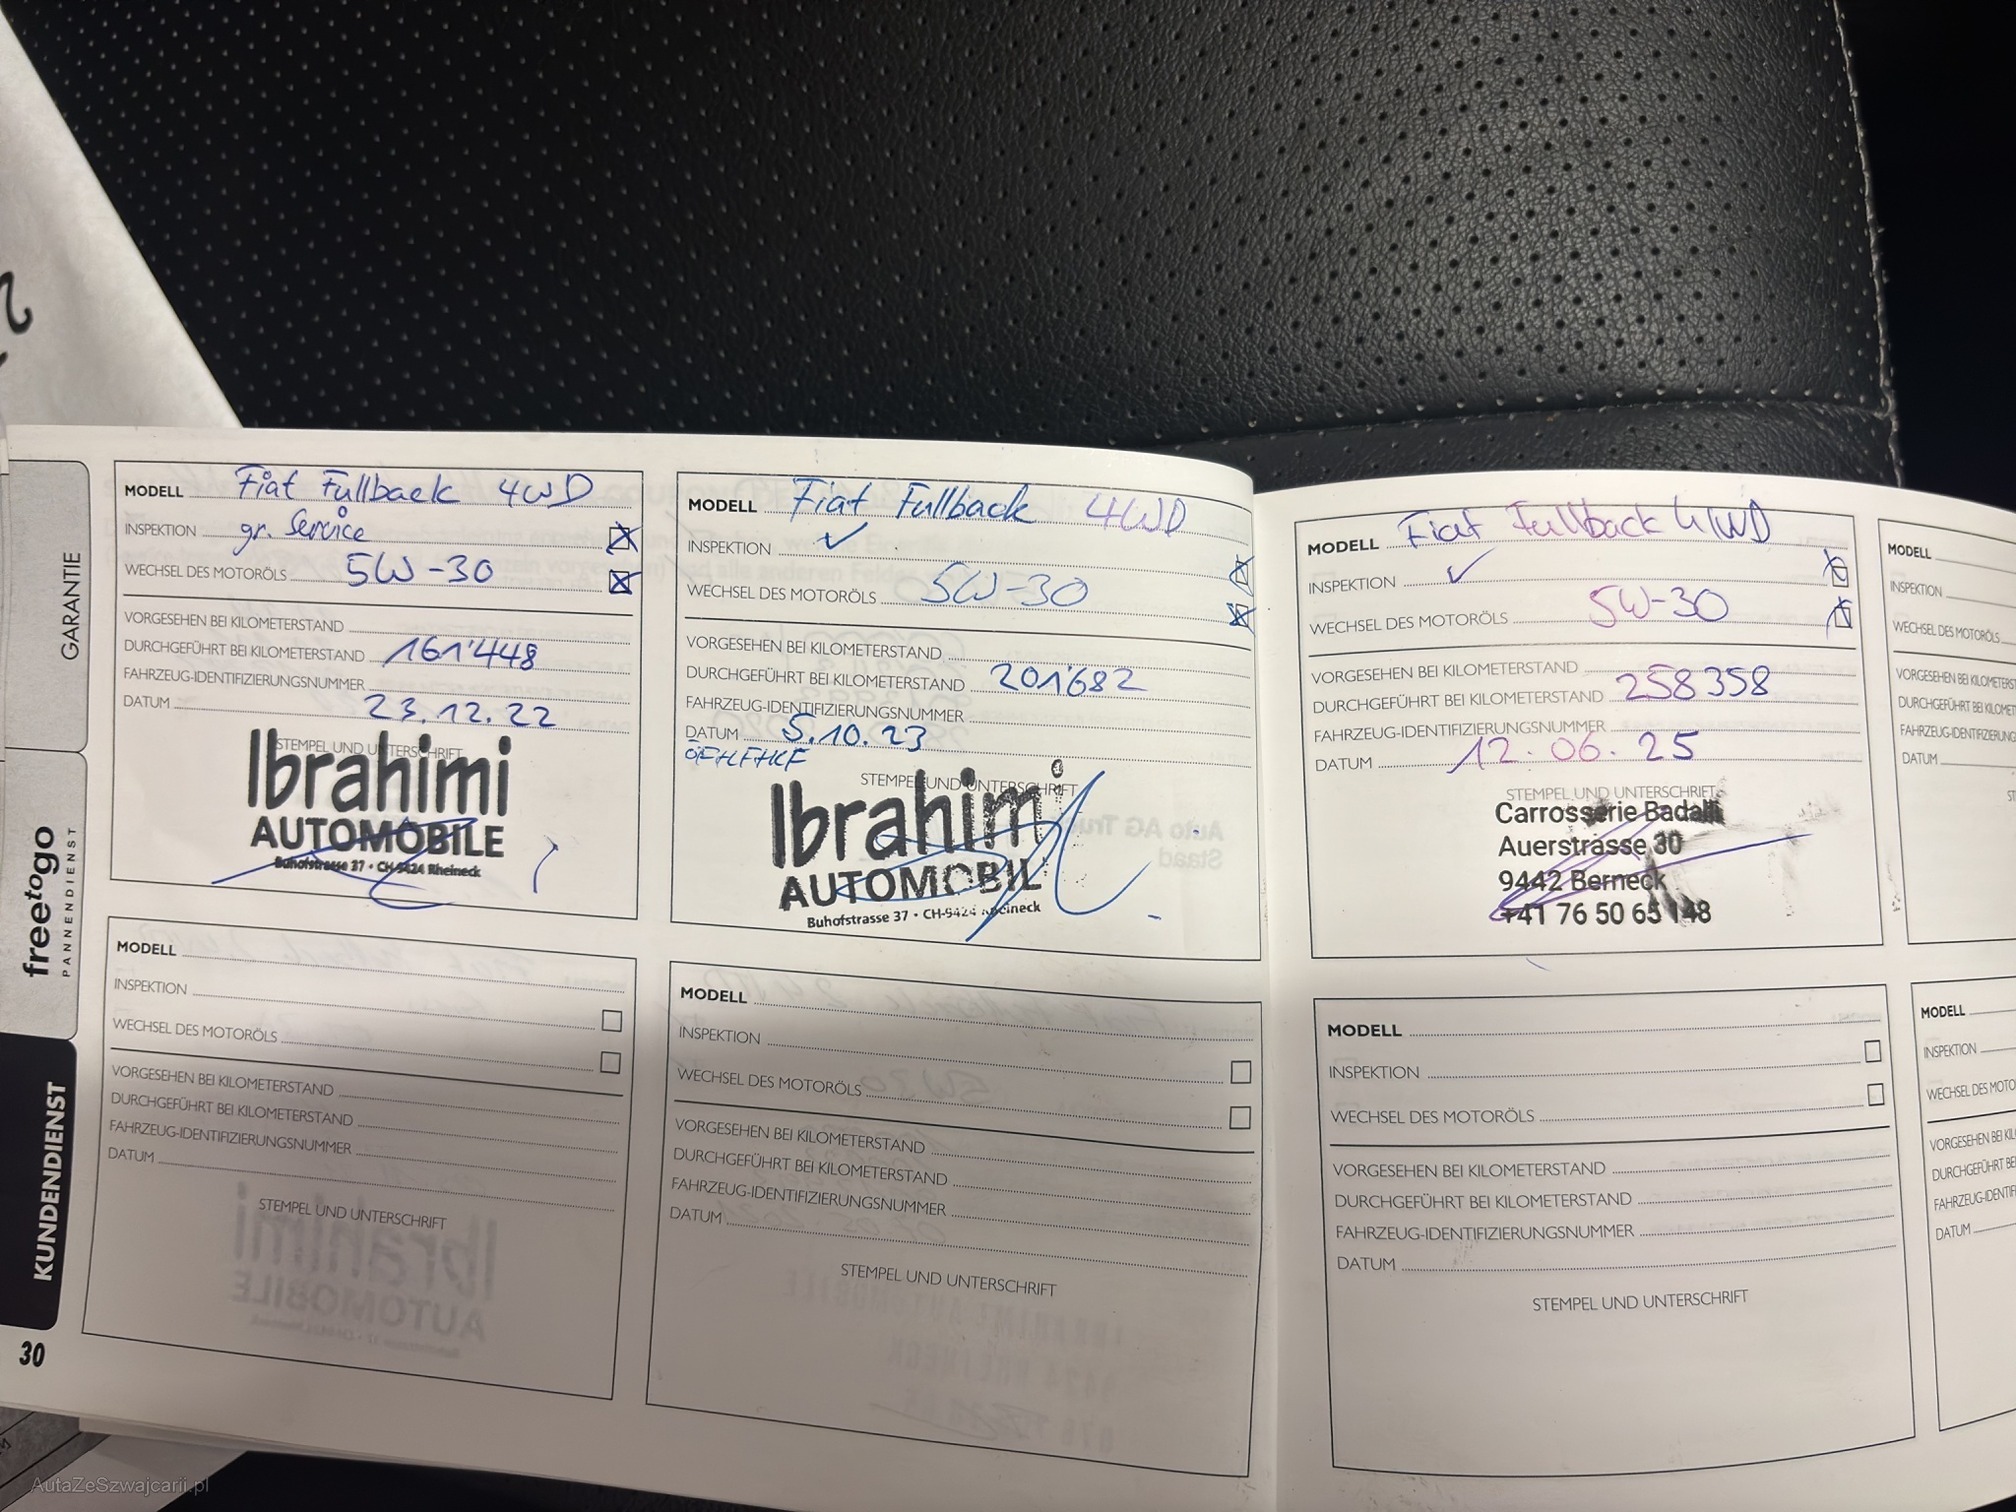 GARANTIE
freetogo
PANNENDIENST
KUNDENDIENST
30
MODELL Fiat Fullback 4WD
INSPEKTION gr. Service
WECHSEL DES MOTORÖLS 5W-30
VORGESEHEN BEI KILOMETERSTAND
DURCHGEFÜHRT BEI KILOMETERSTAND 161'448
FAHRZEUG-IDENTIFIZIERUNGSNUMMER
DATUM 23.12.22
STEMPEL UND UNTERSCHRIFT
Ibrahimi
AUTOMOBILE
Buhofstrasse 37 • CH-9424 Rheineck
MODELL Fiat Fullback 4WD
INSPEKTION ✓
WECHSEL DES MOTORÖLS 5W-30
VORGESEHEN BEI KILOMETERSTAND
DURCHGEFÜHRT BEI KILOMETERSTAND 201'682
FAHRZEUG-IDENTIFIZIERUNGSNUMMER
DATUM 5.10.23
STEMPEL UND UNTERSCHRIFT
Ibrahimi
AUTOMOBIL
Buhofstrasse 37 • CH-9424 Rheineck
MODELL Fiat Fullback 4WD
INSPEKTION ✓
WECHSEL DES MOTORÖLS 5W-30
VORGESEHEN BEI KILOMETERSTAND
DURCHGEFÜHRT BEI KILOMETERSTAND 258358
FAHRZEUG-IDENTIFIZIERUNGSNUMMER
DATUM 12.06.25
STEMPEL UND UNTERSCHRIFT
Carrosserie Badalli
Auerstrasse 30
9442 Berneck
+41 76 50 65 148
MODELL
INSPEKTION
WECHSEL DES MOTORÖLS
VORGESEHEN BEI KILOMETERS
DURCHGEFÜHRT BEI KILOMET
FAHRZEUG-IDENTIFIZIERUNG
DATUM
MODELL
INSPEKTION
WECHSEL DES MOTORÖLS
VORGESEHEN BEI KILOMETERSTAND
DURCHGEFÜHRT BEI KILOMETERSTAND
FAHRZEUG-IDENTIFIZIERUNGSNUMMER
DATUM
STEMPEL UND UNTERSCHRIFT
MODELL
INSPEKTION
WECHSEL DES MOTORÖLS
VORGESEHEN BEI KILOMETERSTAND
DURCHGEFÜHRT BEI KILOMETERSTAND
FAHRZEUG-IDENTIFIZIERUNGSNUMMER
DATUM
STEMPEL UND UNTERSCHRIFT
MODELL
INSPEKTION
WECHSEL DES MOTORÖLS
VORGESEHEN BEI KILOMETERSTAND
DURCHGEFÜHRT BEI KILOMETERSTAND
FAHRZEUG-IDENTIFIZIERUNGSNUMMER
DATUM
STEMPEL UND UNTERSCHRIFT
MODELL
INSPEKTION
WECHSEL DES MOTO
VORGESEHEN BEI KIL
DURCHGEFÜHRT BE
FAHRZEUG-IDENTIFI
DATUM
AutaZeSzwajcarii.pl